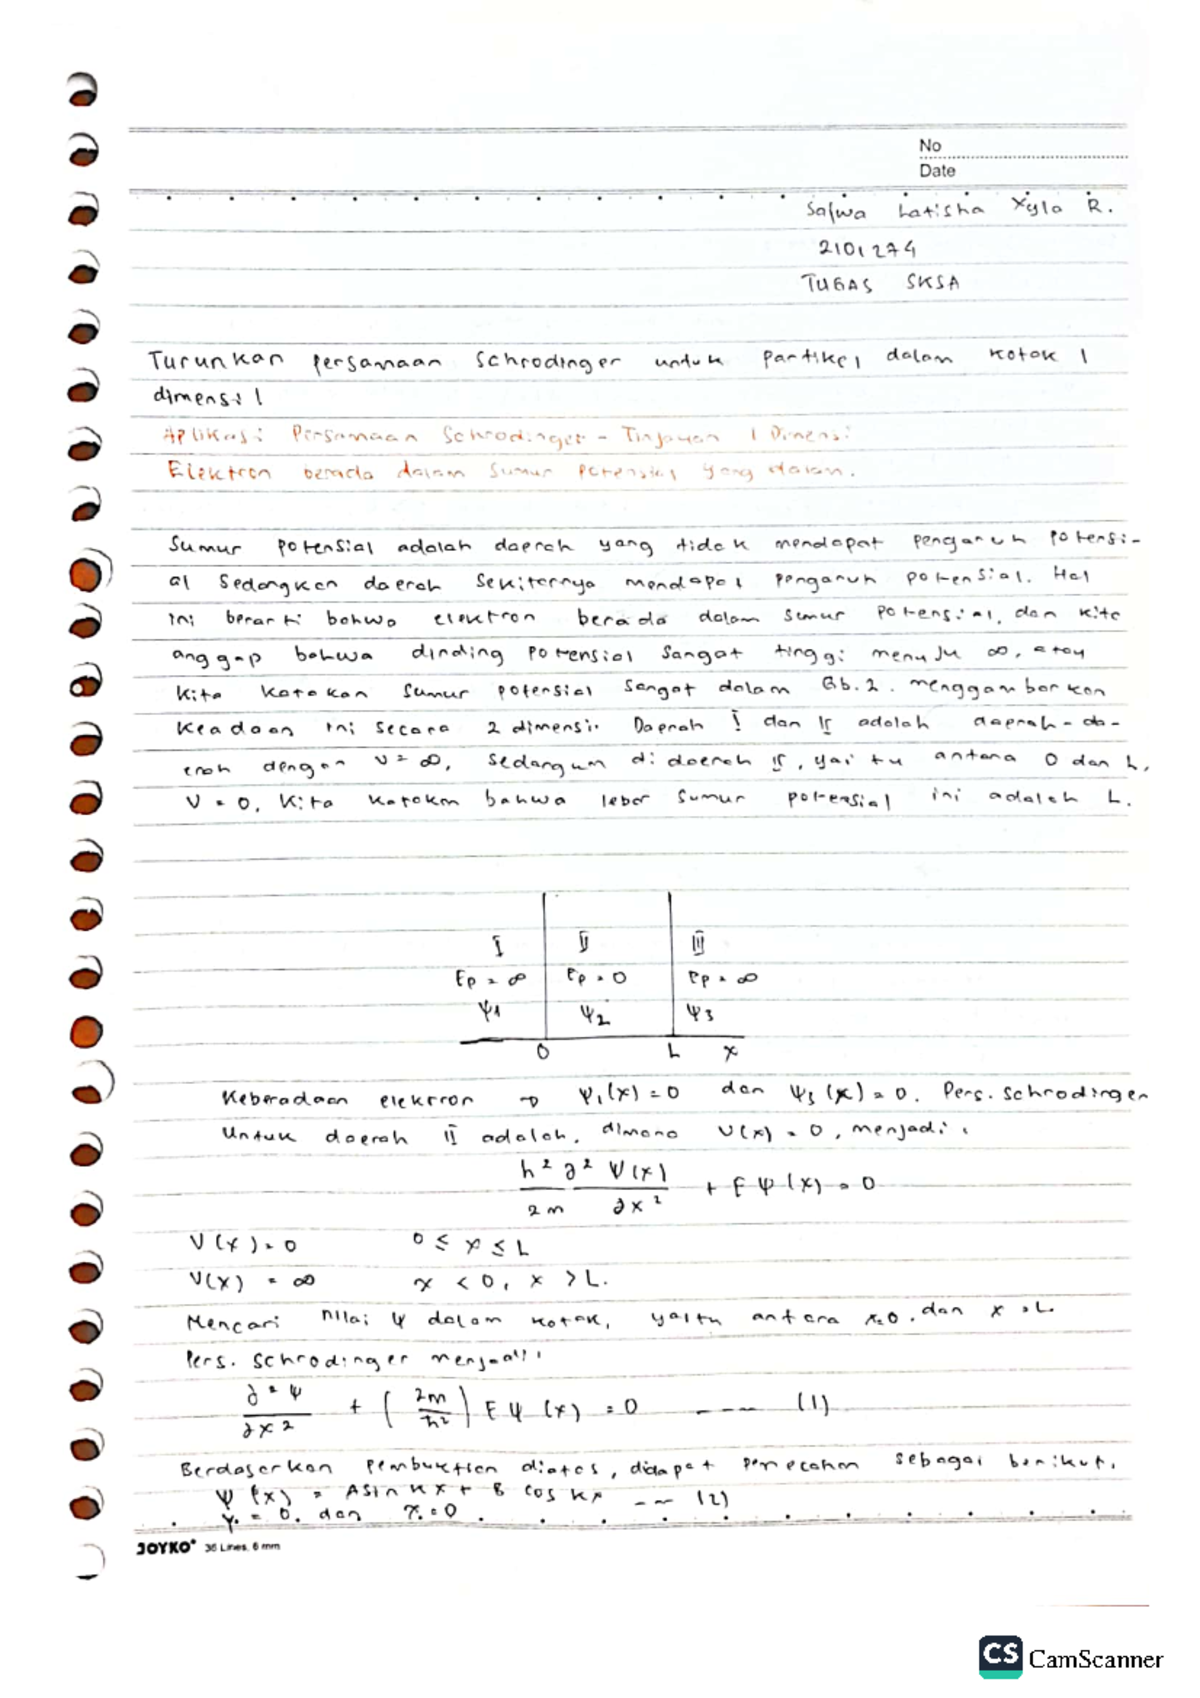 No
Date
Salwa Latisha Xyla R.
2101274
TUGAS SKSA
Turunkan persamaan Schrodinger untuk partikel dalam kotak 1
dimensi!
Aplikasi Persamaan Schrodinger - Tinjauan 1 Dimensi
Elektron berada dalam sumur potensial yang dalam.
Sumur potensial adalah daerah yang tidak mendapat pengaruh potensi-
al sedangkan daerah sekitarnya mendapat pengaruh potensial. Hal
ini berarti bahwa elektron berada dalam sumur potensial, dan kita
anggap bahwa dinding potensial sangat tinggi menuju ∞, atau
kita katakan sumur potensial sangat dalam Gb.2. menggambarkan
keadaan ini secara 2 dimensi. Daerah I dan II adalah daerah-da-
erah dengan V = ∞, sedangkan di daerah II, yaitu antara 0 dan L,
V = 0, kita katakan bahwa lebar sumur potensial ini adalah L.
I II III
Ep = ∞ Ep = 0 Ep = ∞
Ψ1 Ψ2 Ψ3
0 L x
Keberadaan elektron → Ψ1(x) = 0 dan Ψ3(x) = 0. Pers. Schrodinger
untuk daerah II adalah, dimana V(x) = 0, menjadi:
h² ∂² Ψ(x) / 2m ∂x² + E Ψ(x) = 0
V(x) = 0 0 ≤ x ≤ L
V(x) = ∞ x < 0, x > L.
Mencari nilai Ψ dalam kotak, yaitu antara x=0. dan x = L.
Pers. Schrodinger menjadi:
∂²Ψ / ∂x² + (2m / ħ²) E Ψ (x) = 0 ---- (1)
Berdasarkan pembuktian diatas, didapat pemecahan sebagai berikut,
Ψ (x) = A sin kx + B cos kx --- (2)
= 0. dan x = 0
JOYKO 36 Lines, 6 mm
CS CamScanner